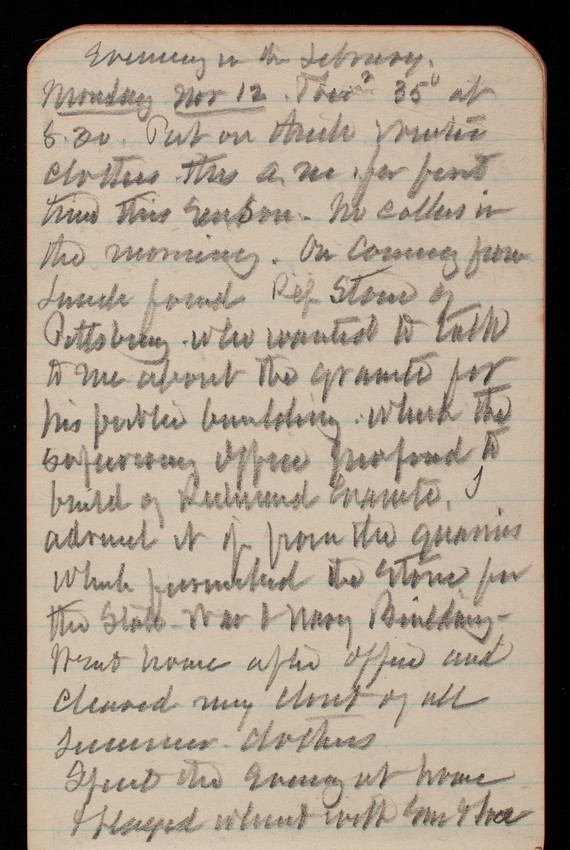 Evening in the Library.
Monday Nov 12. Ther 35° at
8.30. Put on thick winter
clothes this a.m. for first
time this season. No callers in
the morning. On coming from
Lunch found Rep Stone of
Pittsburg who wanted to talk
to me about the granite for
his public building. which the
supervising office proposed to
build of Richmond Granite. I
advised it if from the quarries
which furnished the stone for
the State War & Navy Building
Went home after office and
cleared my closet of all
summer clothes
Spent the Evening at home
& played whist with